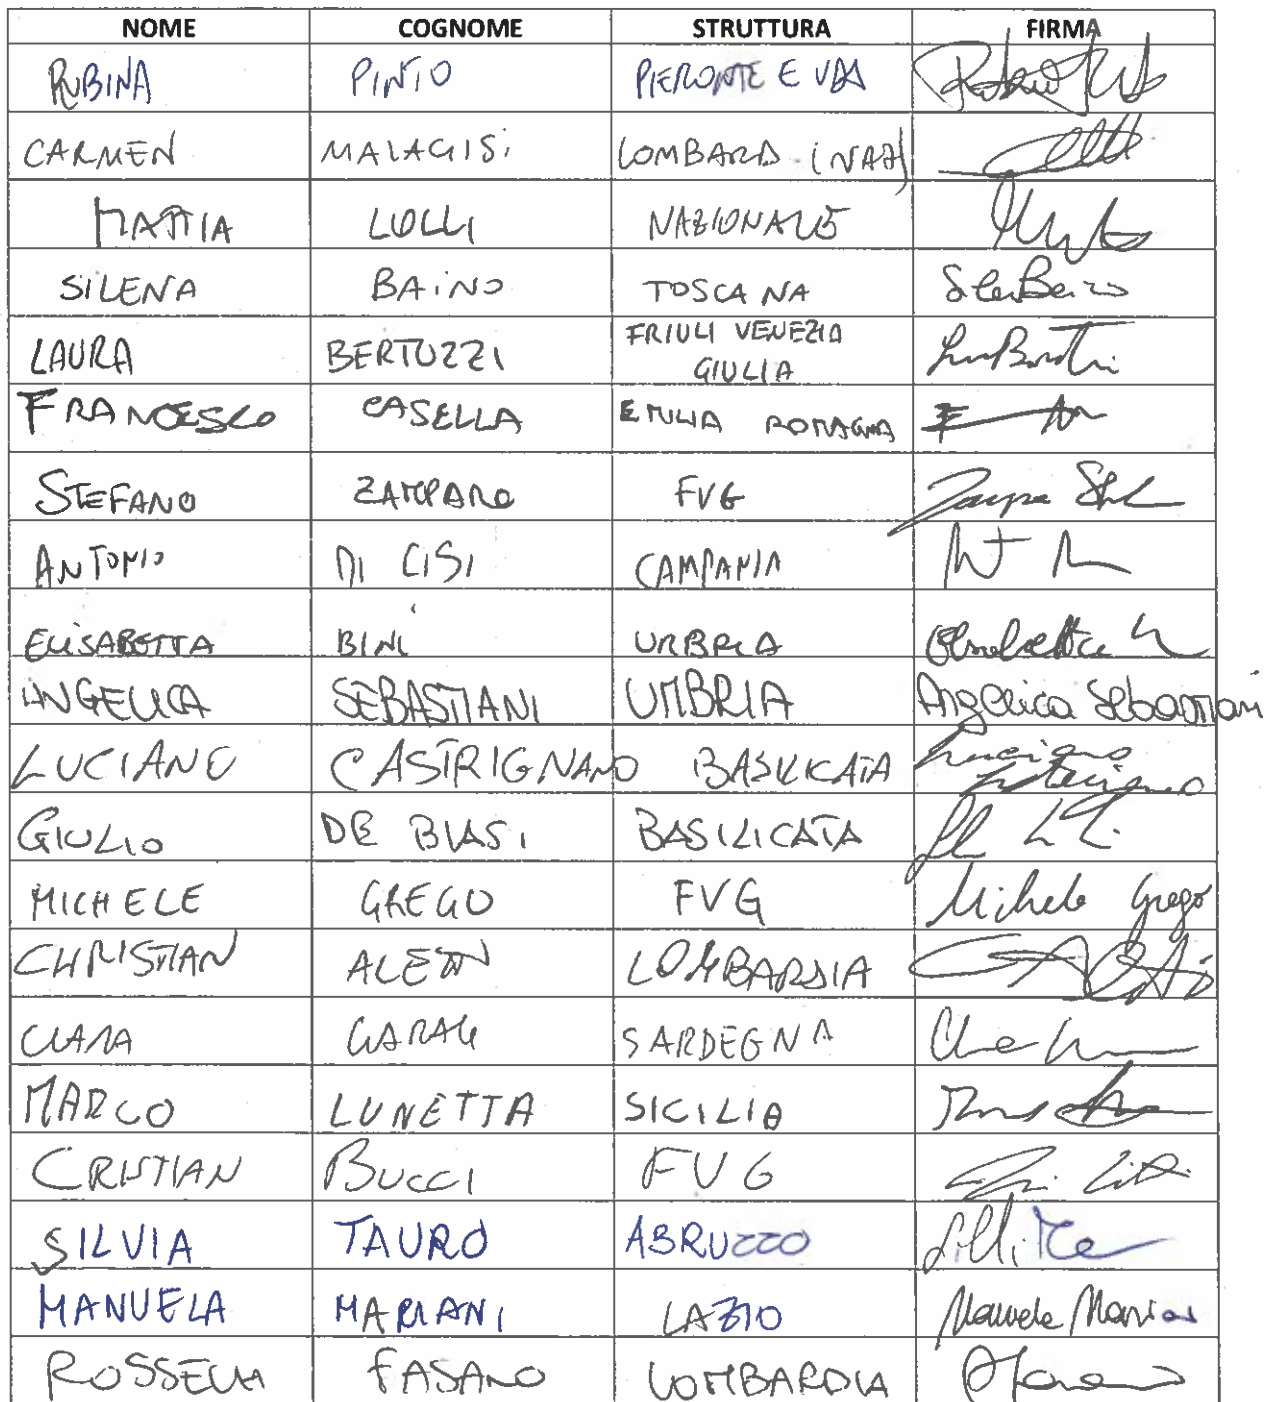 NOME COGNOME STRUTTURA FIRMA
RUBINA PINTO PIEMONTE E VDA
CARMEN MALAGISI LOMBARD (NAZ)
MATTIA LOLLI NAZIONALE
SILENA BAINO TOSCANA
LAURA BERTUZZI FRIULI VENEZIA
GIULIA
FRANCESCO CASELLA EMILIA ROMAGNA
STEFANO ZAMPARO FVG
ANTONIO DI CISI CAMPANIA
ELISABETTA BINI UMBRIA Elisabetta
ANGELICA SEBASTIANI UMBRIA Angelica Sebastiani
LUCIANO CASTRIGNANO BASILICATA Luciano
GIULIO DE BLASI BASILICATA
MICHELE GREGO FVG Michele Grego
CHRISTIAN ALETTI LOMBARDIA
CLARA SARDEGNA
MARCO LUNETTA SICILIA
CRISTIAN BUCCI FVG
SILVIA TAURO ABRUZZO
MANUELA MARIANI LAZIO Manuela Mariani
ROSSELLA FASANO LOMBARDIA